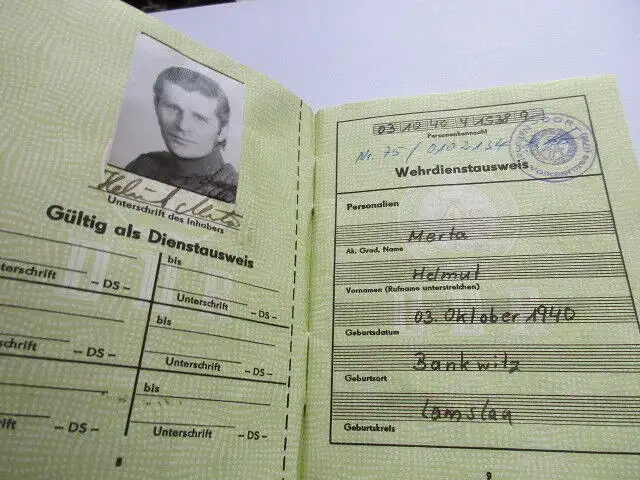 Helmut Merta
Unterschrift des Inhabers
Gültig als Dienstausweis
bis
Unterschrift – DS –
Unterschrift – DS –
bis
schrift – DS –
Unterschrift – DS –
bis
ift – DS –
Unterschrift – DS –
8
03 10 40 4 1538 9
Personenkennzahl
Nr. 75/0102134
DDR
Wehrdienstausweis
Personalien
Merta
Ak. Grad, Name
Helmut
Vornamen (Rufname unterstreichen)
03. Oktober 1940
Geburtsdatum
Bankwitz
Geburtsort
Lamslau
Geburtskreis
9